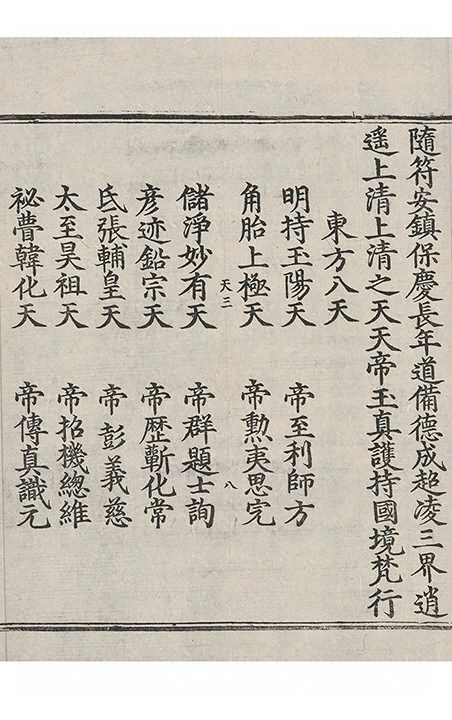 隨符安鎮保慶長年道備德成超凌三界逍
遥上清上清之天天帝玉真護持國境梵行
東方八天
明持玉陽天 帝至利師方
角胎上極天 帝勲夷思完
天三 八
儲淨妙有天 帝群題士詢
彦迹鉛宗天 帝歴蘄化常
氐張輔皇天 帝彭義慈
太至昊祖天 帝招機總維
祕曹韓化天 帝傳真識元